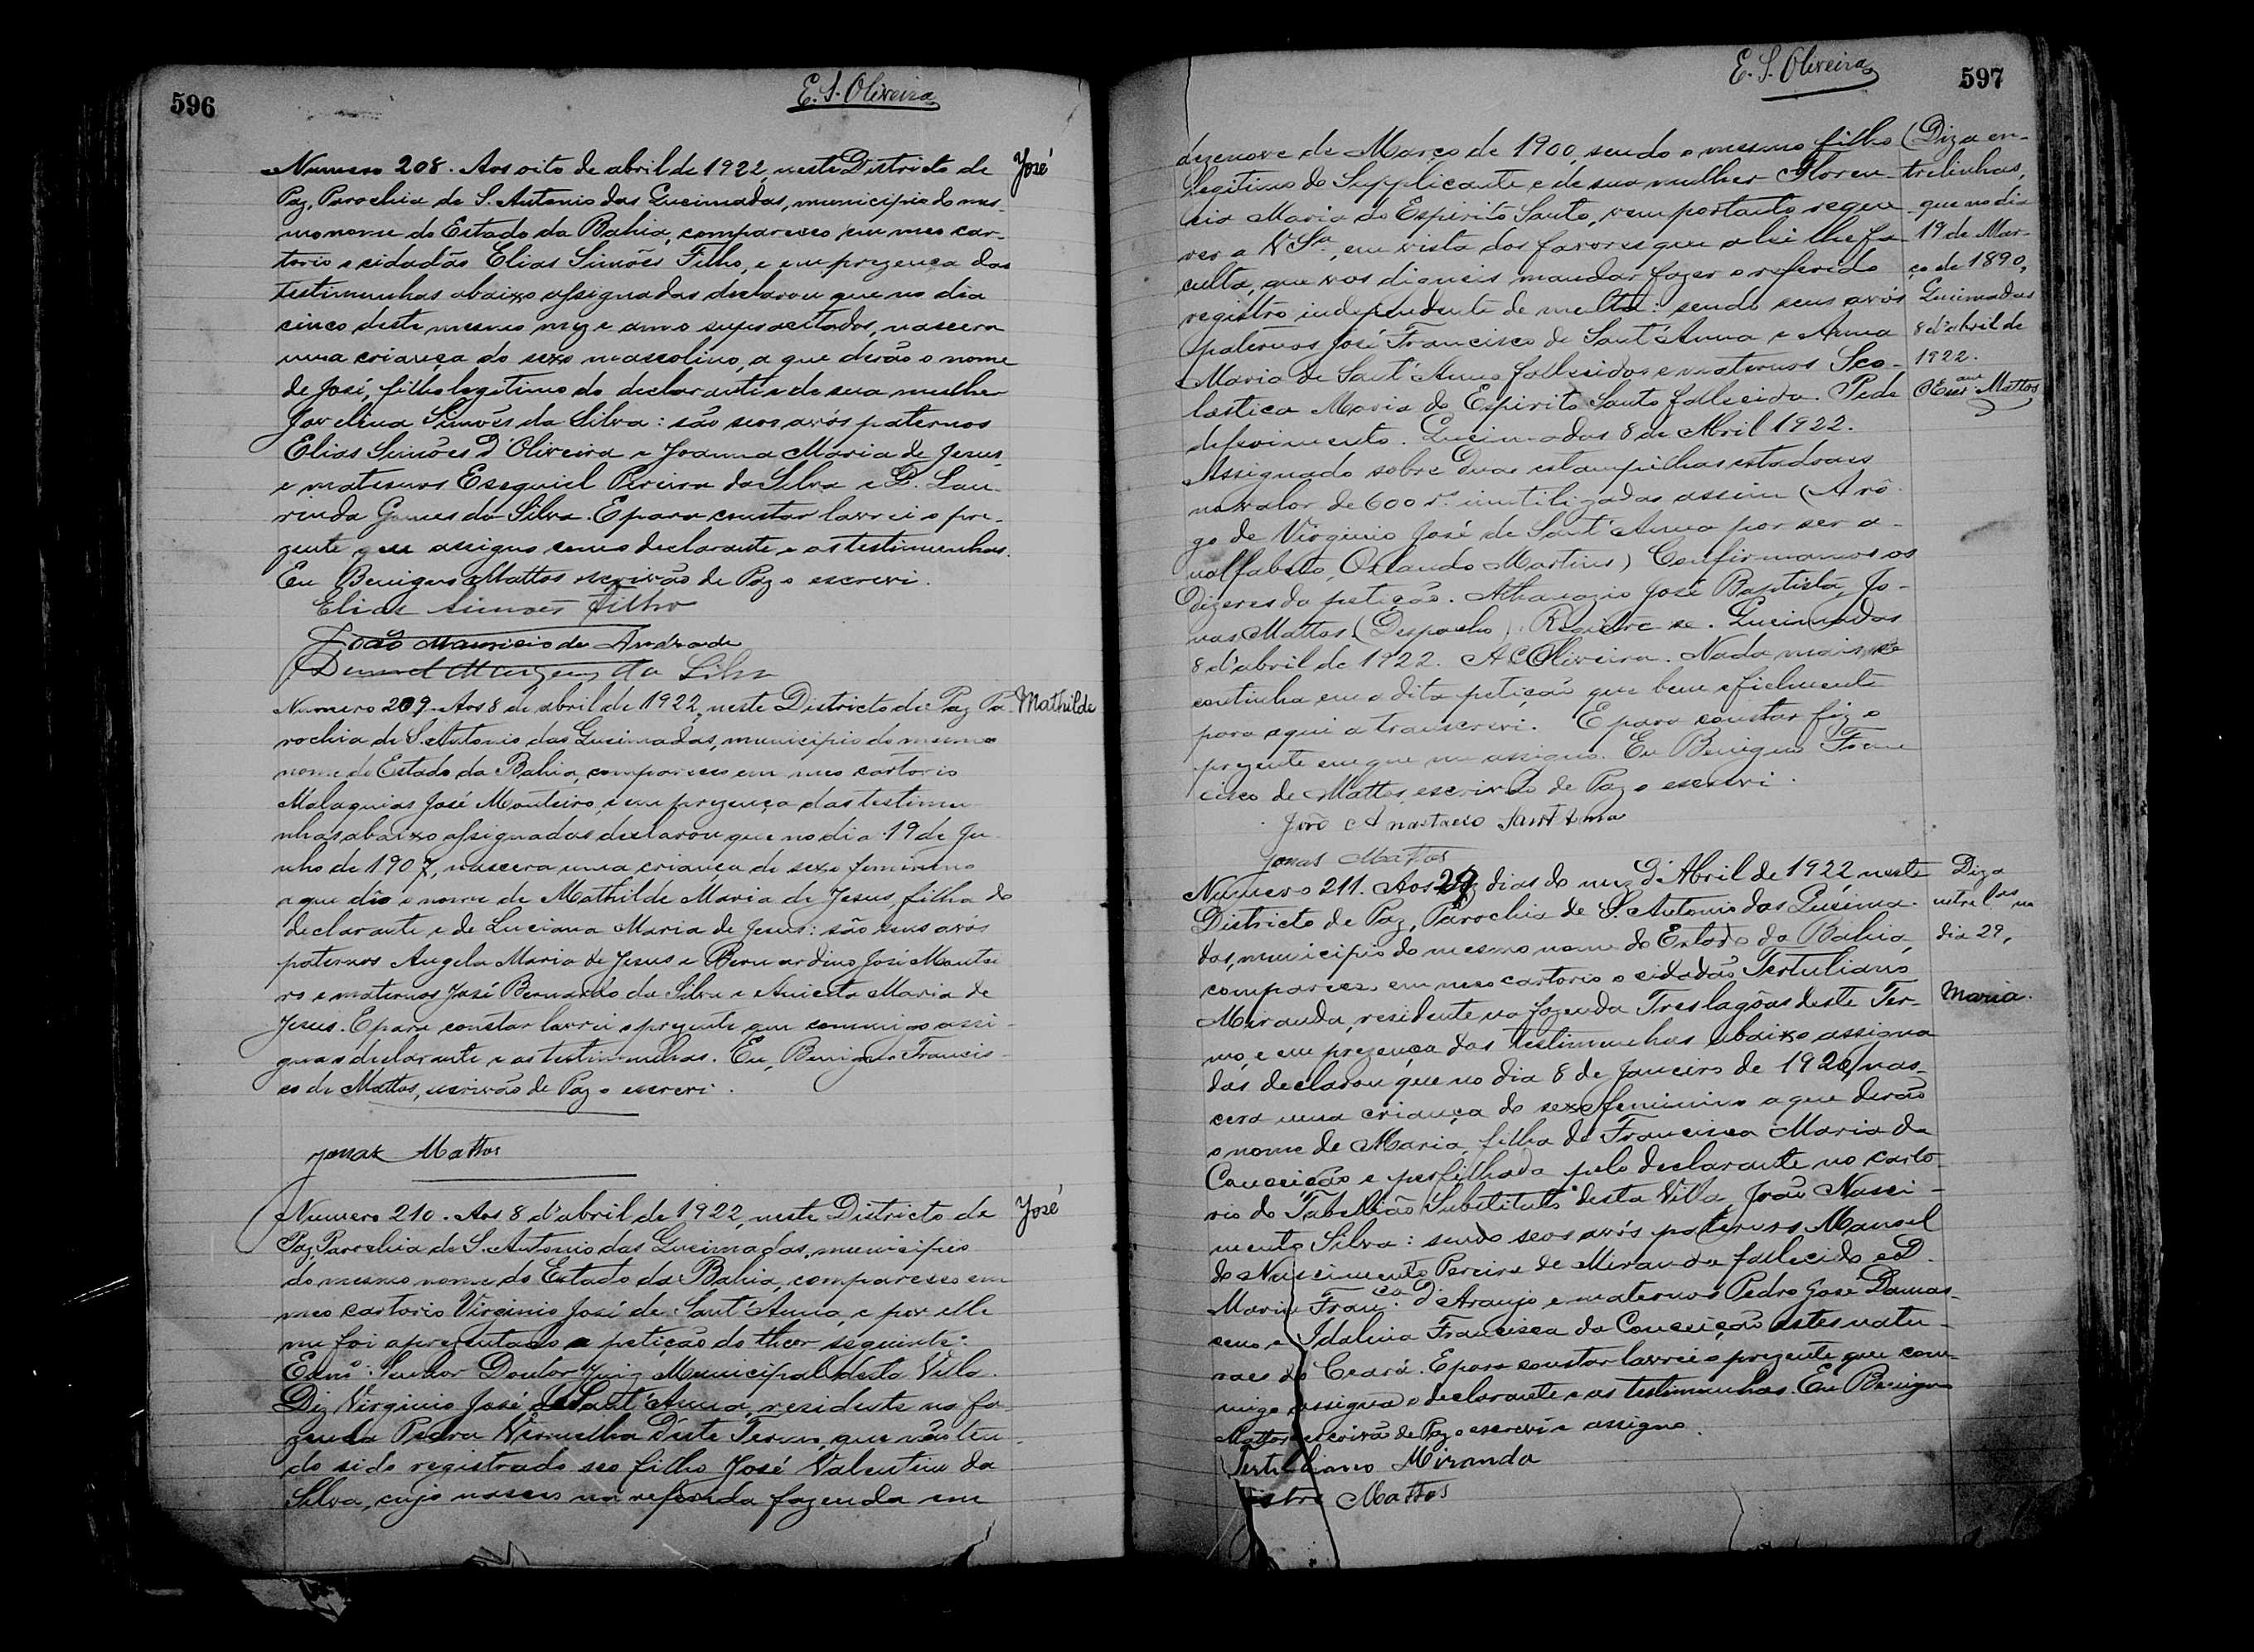 596
E. S. Oliveira
Numero 208. Aos oito de abril de 1922, neste Districto de
José
Paz, Parochia de S. Antonio das Queimadas, municipio do mes-
mo nome do Estado da Bahia, compareceo em meo car-
torio o cidadão Elias Simões Filho, e em prezença das
testimunhas abaixo assignadas declarou que no dia
cinco deste mesmo mez e anno supra citados, nascera
uma criança do sexo mascolino, a que derão o nome
de José, filho legitimo do declarante e de sua mulher
Jovelina Simões da Silva: são seos avós paternos
Elias Simões D'Oliveira e Joanna Maria de Jesus,
e maternos Esequiel Pereira da Silva e D. Lau-
rinda Gomes da Silva. E para constar lavrei o pre-
zente que assigno com o declarante e as testimunhas.
Eu Benigno Mattos escrivão de Paz o escrevi.
Elias Simões Filho
João Mauricio de Andrade
da Silva
Numero 209. Aos 8 de abril de 1922, neste Districto de Paz Pa-
Mathilde
rochia de S. Antonio das Queimadas, municipio do mesmo
nome do Estado da Bahia, compareceo em meo cartorio
Malaquias José Monteiro, e em prezença das testimu-
nhas abaixo assignadas declarou que no dia 19 de Ju-
nho de 1907, nascera uma criança do sexo feminino
a que dão o nome de Mathilde Maria de Jesus, filha do
declarante e de Luciana Maria de Jesus: são seus avós
paternos Angela Maria de Jesus e Bernardino José Montei-
ro e maternos José Bernardo da Silva e Anicta Maria de
Jesus. E para constar lavrei o prezente que commigo assi-
gna o declarante e as testimunhas. Eu, Benigno Francis-
co de Mattos, escrivão de Paz o escrevi.
Jonas Mattos
Numero 210. Aos 8 d'abril de 1922, neste Districto de
José
Paz, Parochia de S. Antonio das Queimadas, municipio
do mesmo nome do Estado da Bahia, compareceo em
meo cartorio Virginio José de Sant'Anna, e por elle
me foi apresentado a petição do theor seguinte:
Exmº. Senhor Doutor Juiz Municipal desta Villa.
Diz Virginio José de Sant'Anna, residente na fa-
zenda Pedra Vermelha d'este Termo, que não ten-
do sido registrado seo filho José Valentim da
Silva, cujo nasceu na referida fazenda em
E. S. Oliveira
597
dezenove de Março de 1900, sendo o mesmo filho
legitimo do Supplicante e de sua mulher Floren-
cia Maria do Espirito Santo, vem portanto reque-
rer a V Sª, em vista dos favores que a lei lhe fa-
culta, que vos digneis mandar fazer o referido
registro independente de multa: sendo seus avós
paternos José Francisco de Sant'Anna e Anna
Maria de Sant'Anna fallecidos e maternos Sco-
lastica Maria do Espirito Santo fallecida. Pede
deferimento. Queimadas 8 de Abril 1922.
Assignado sobre duas estampilhas estadoaes
no valor de 600 rs inutilizadas assim (A rô-
go de Virginio José de Sant'Anna por ser a-
nalfabeto, Orlando Martins) Confirmamos os
dizeres da petição. Athanazio José Baptista, Jo-
nas Mattos (Despacho). Registre-se. Queimadas
8 d'abril de 1922. A C Oliveira. Nada mais se
continha em a dita petição que bem e fielmente
para aqui a transcrevi. E para constar fiz o
prezente em que me assigno. Eu Benigno Fran-
cisco de Mattos, escrivão de Paz o escrevi.
(Diz a en-
trelinhas,
que no dia
19 de Mar-
ço de 1890,
Queimadas
8 d'abril de
1922.
O Escram Mattos
João Anastacio Sant Anna
Jonas Mattos
Numero 211. Aos 29 dias do mez d'Abril de 1922 neste
Districto de Paz, Parochia de S. Antonio das Queima-
das, municipio do mesmo nome do Estado da Bahia,
compareceo em meo cartorio o cidadão Tertuliano
Miranda, residente na fazenda Tres lagôas deste Ter-
mo, e em prezença das testimunhas abaixo assigna-
das declarou que no dia 8 de Janeiro de 1920, nas-
cera uma criança do sexo feminino a que derão
o nome de Maria, filha de Francisca Maria da
Conceição e perfilhada pelo declarante no carto-
rio do Tabellião Substituto desta Villa, João Nasci-
mento Silva: sendo seos avós paternos Manoel
do Nascimento Pereira de Miranda fallecido e D.
Maria Franca d'Araujo e maternos Pedro José Damas-
ceno e Idalina Francisca da Conceição estes natu-
raes do Ceará. E para constar lavrei o prezente que com-
migo assigna o declarante e as testimunhas. Eu Benigno
Mattos escrivão de Paz o escrevi e assigno.
Diz a
entrelas no
dia 29,
Maria.
Tertuliano Miranda
Mattos